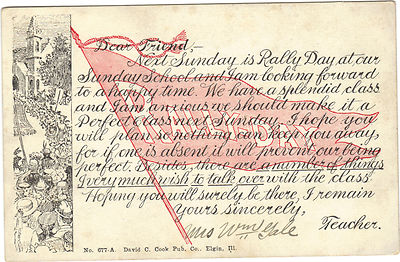 Dear Friend,-
Next Sunday is Rally Day at our
Sunday School and I am looking forward
to a happy time. We have a splendid class
and I am anxious we should make it a
Perfect class next Sunday. I hope you
will plan so nothing can keep you away,
for if one is absent it will prevent our being
perfect. Besides there are a number of things
I very much wish to talk over with the class.
Hoping you will surely be there, I remain
Yours sincerely,
Mrs Wm
Teacher.
No. 677-A. David C. Cook Pub. Co., Elgin, Ill.